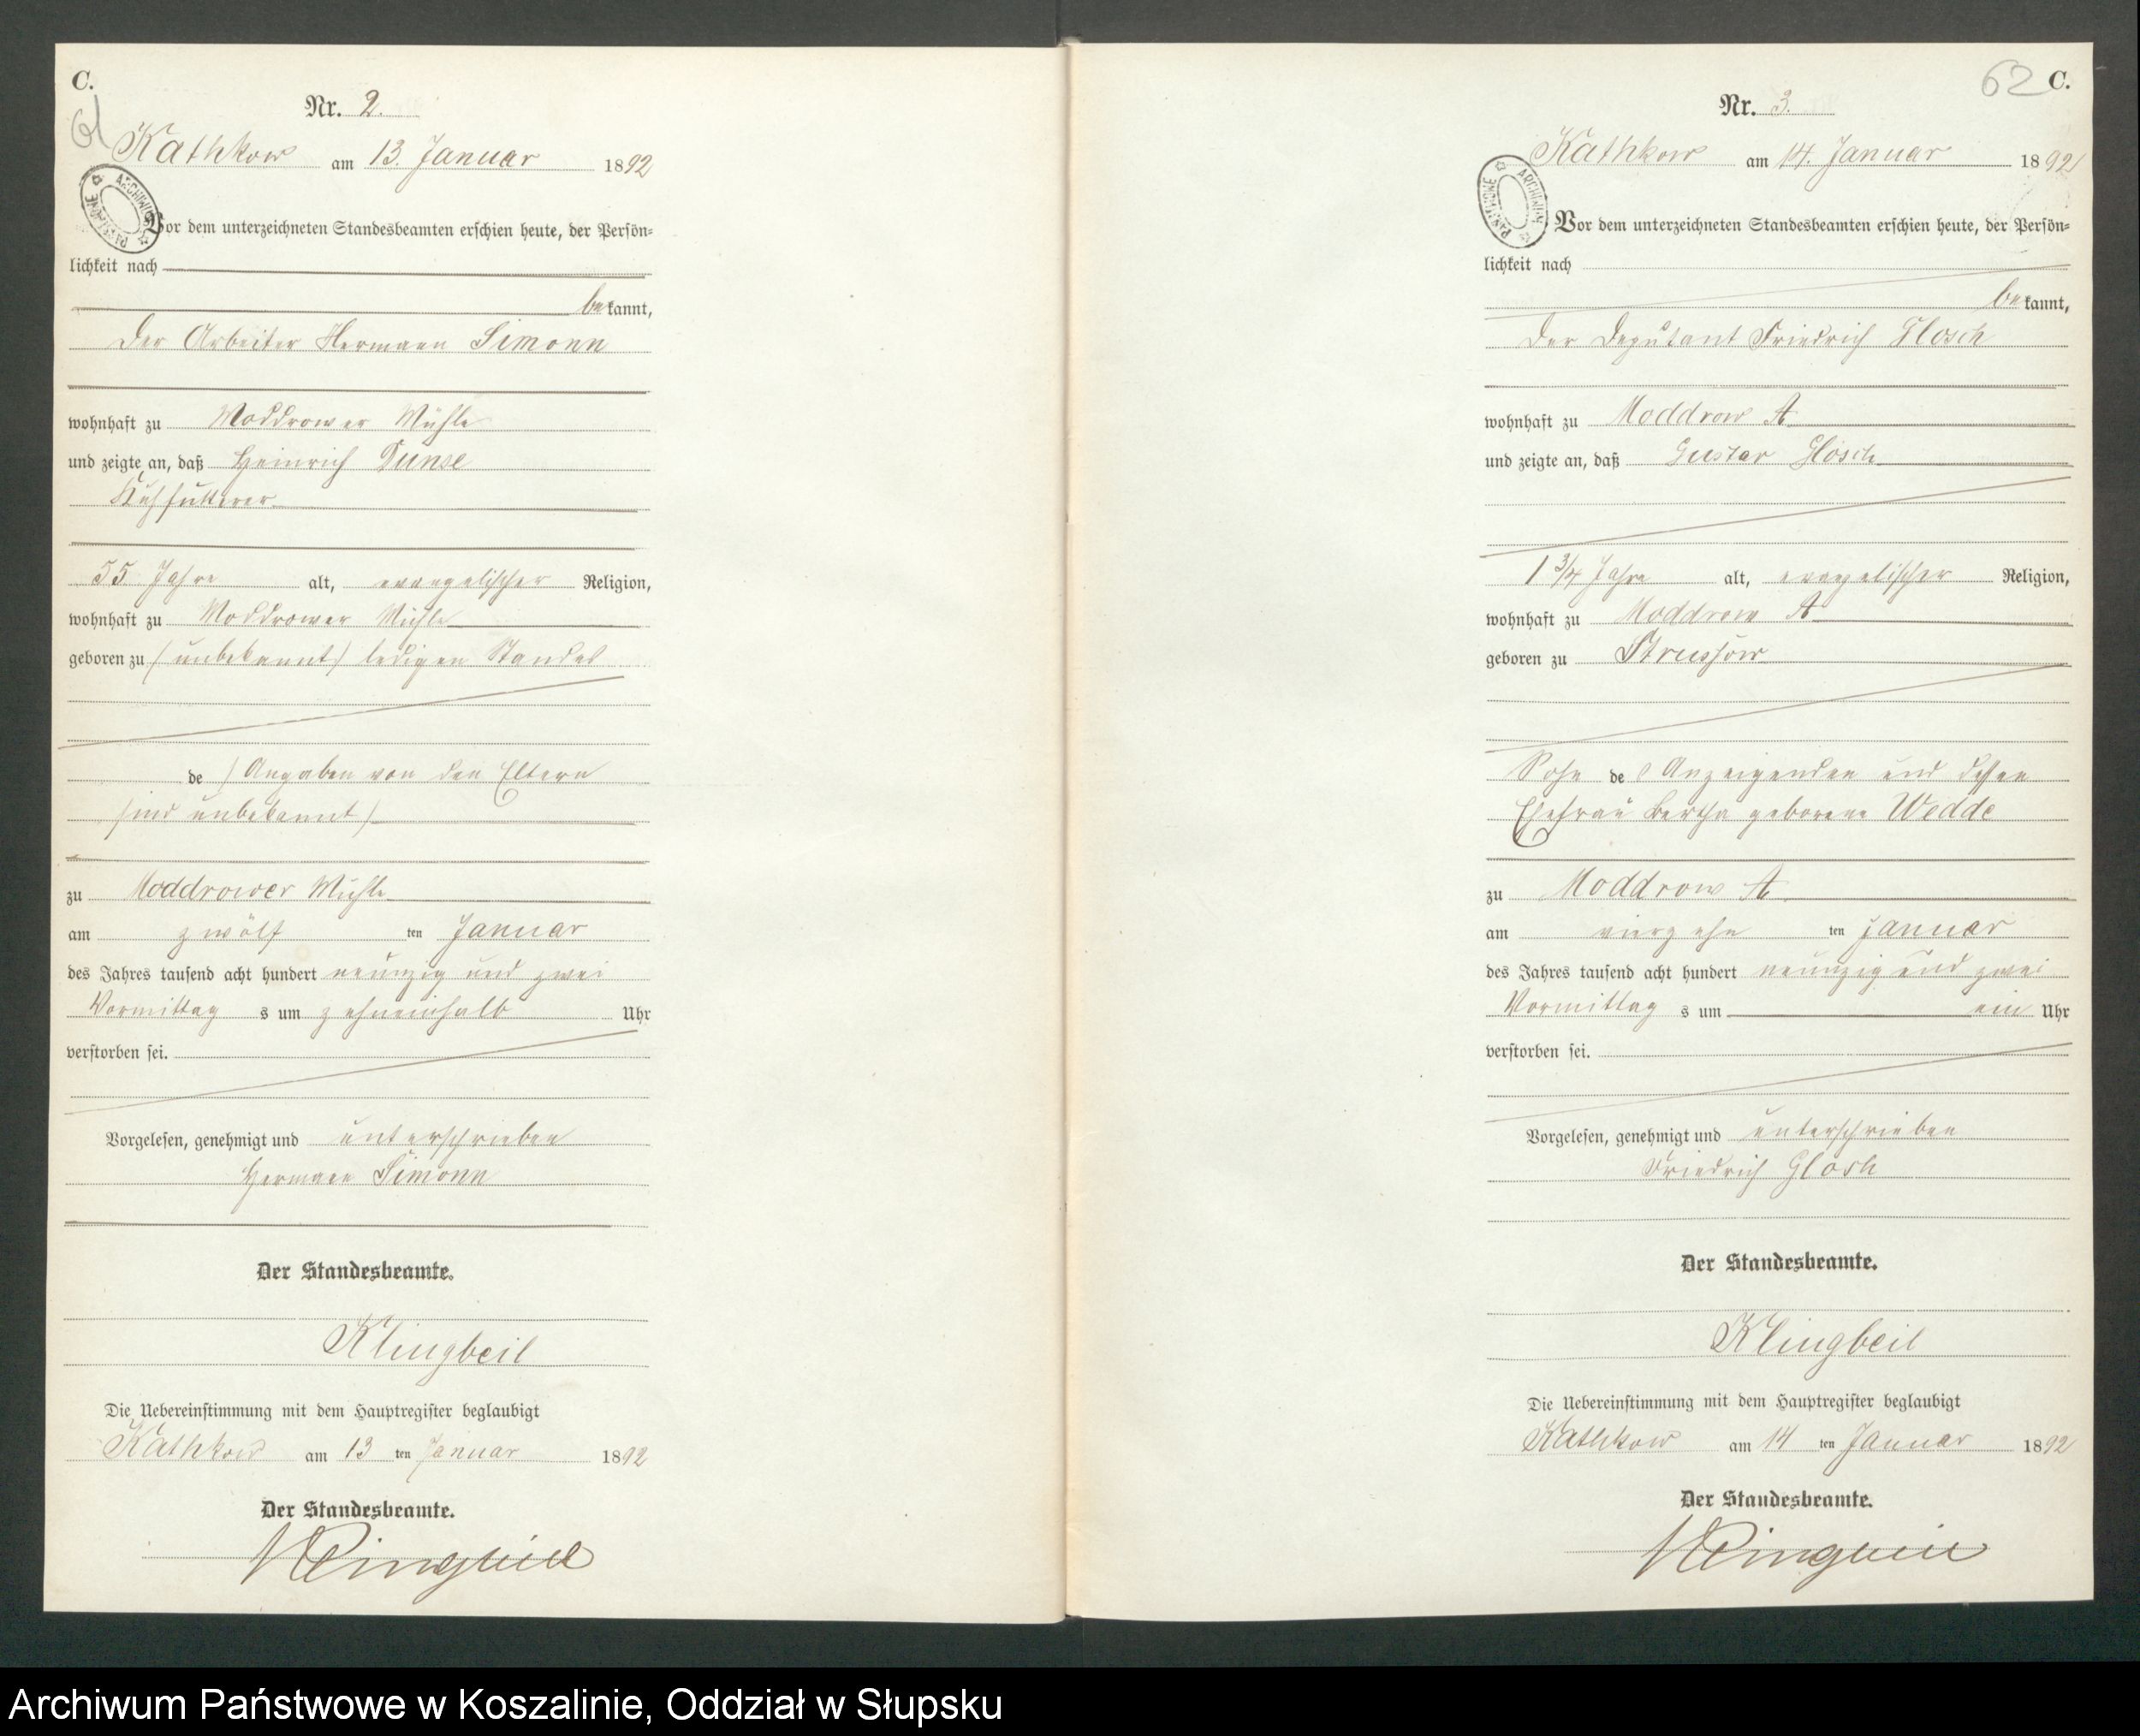 C.
61
Nr. 2.
Kathkow am 13. Januar 1892
ARCHIWUM PAŃSTWOWE
Vor dem unterzeichneten Standesbeamten erschien heute, der Persön-
lichkeit nach
bekannt,
der Arbeiter Hermann Simonn
wohnhaft zu Moddrower Mühle
und zeigte an, daß Heinrich Dunse
Kuhfütterer
55 Jahre alt, evangelischer Religion,
wohnhaft zu Moddrower Mühle
geboren zu (unbekannt) ledigen Standes
de (Angaben von den Eltern
sind unbekannt)
zu Moddrower Mühle
am zwölf ten Januar
des Jahres tausend acht hundert neunzig und zwei
Vormittag s um zehneinhalb Uhr
verstorben sei.
Vorgelesen, genehmigt und unterschrieben
Hermann Simonn
Der Standesbeamte.
Klingbeil
Die Uebereinstimmung mit dem Hauptregister beglaubigt
Kathkow am 13 ten Januar 1892
Der Standesbeamte.
Klingbeil
62 C.
Nr. 3.
Kathkow am 14. Januar 1892
ARCHIWUM PAŃSTWOWE
Vor dem unterzeichneten Standesbeamten erschien heute, der Persön-
lichkeit nach
bekannt,
der Deputant Friedrich Glosch
wohnhaft zu Moddrow A
und zeigte an, daß Gustav Glosch
1 3/4 Jahre alt, evangelischer Religion,
wohnhaft zu Moddrow A
geboren zu Strussow
Sohn des Anzeigenden und dessen
Ehefrau Bertha geborene Wedde
zu Moddrow A.
am vierzehn ten Januar
des Jahres tausend acht hundert neunzig und zwei
Vormittag s um ein Uhr
verstorben sei.
Vorgelesen, genehmigt und unterschrieben
Friedrich Glosh
Der Standesbeamte.
Klingbeil
Die Uebereinstimmung mit dem Hauptregister beglaubigt
Kathkow am 14 ten Januar 1892
Der Standesbeamte.
Klingbeil
Archiwum Państwowe w Koszalinie, Oddział w Słupsku